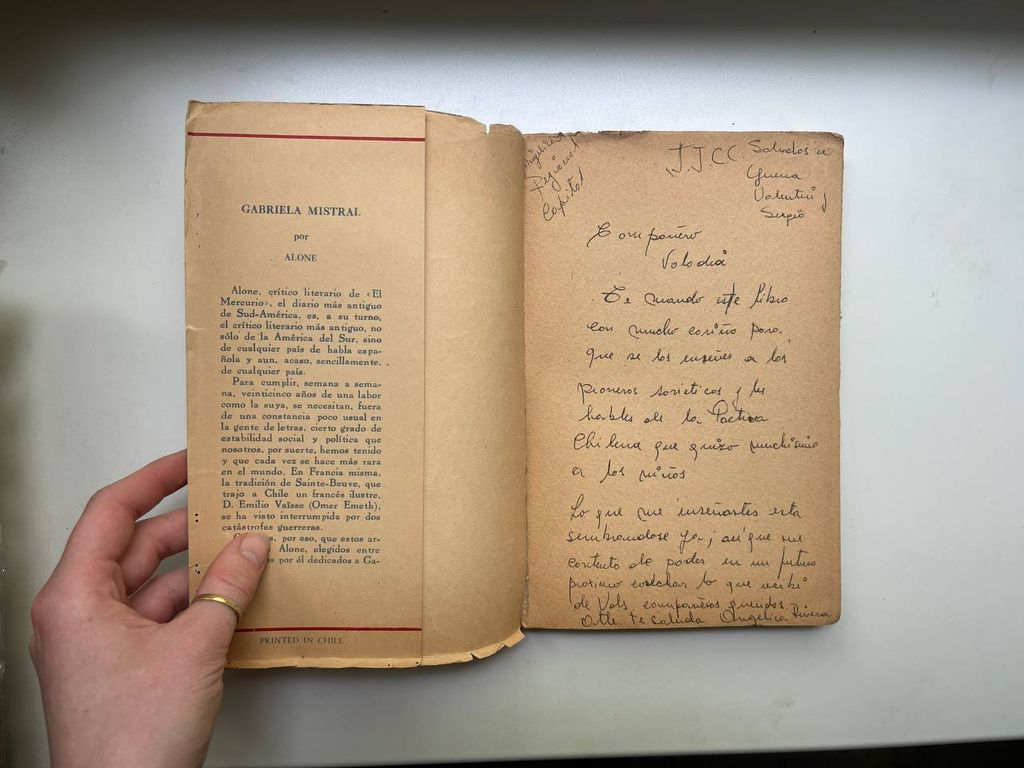 GABRIELA MISTRAL
por
ALONE
Alone, crítico literario de «El
Mercurio», el diario más antiguo
de Sud-América, es, a su turno,
el crítico literario más antiguo, no
sólo de la América del Sur, sino
de cualquier país de habla espa-
ñola y aun, acaso, sencillamente,
de cualquier país.
Para cumplir, semana a sema-
na, veinticinco años de una labor
como la suya, se necesitan, fuera
de una constancia poco usual en
la gente de letras, cierto grado de
estabilidad social y política que
nosotros, por suerte, hemos tenido
y que cada vez se hace más rara
en el mundo. En Francia misma,
la tradición de Sainte-Beuve, que
trajo a Chile un francés ilustre,
D. Emilio Vaïsse (Omer Emeth),
se ha visto interrumpida por dos
catástrofes guerreras.
por eso, que estos ar-
Alone, elegidos entre
por él dedicados a Ga-
PRINTED IN CHILE
Regional
Capital
J.J.C.C. Saludos a
Guerra
Valentín y
Sergio
Compañero
Volodia
Te mando este libro
con mucho cariño para
que se los enseñes a los
pioneros sovieticos y les
hables de la Poetisa
Chilena que quizo muchisimo
a los niños
Lo que me inseñastes esta
sembrandose ya; asi que me
contento de poder en un futuro
proximo cosechar lo que recibi
de Uds. compañeros queridos.
Atte. te saluda Angelica Rivera